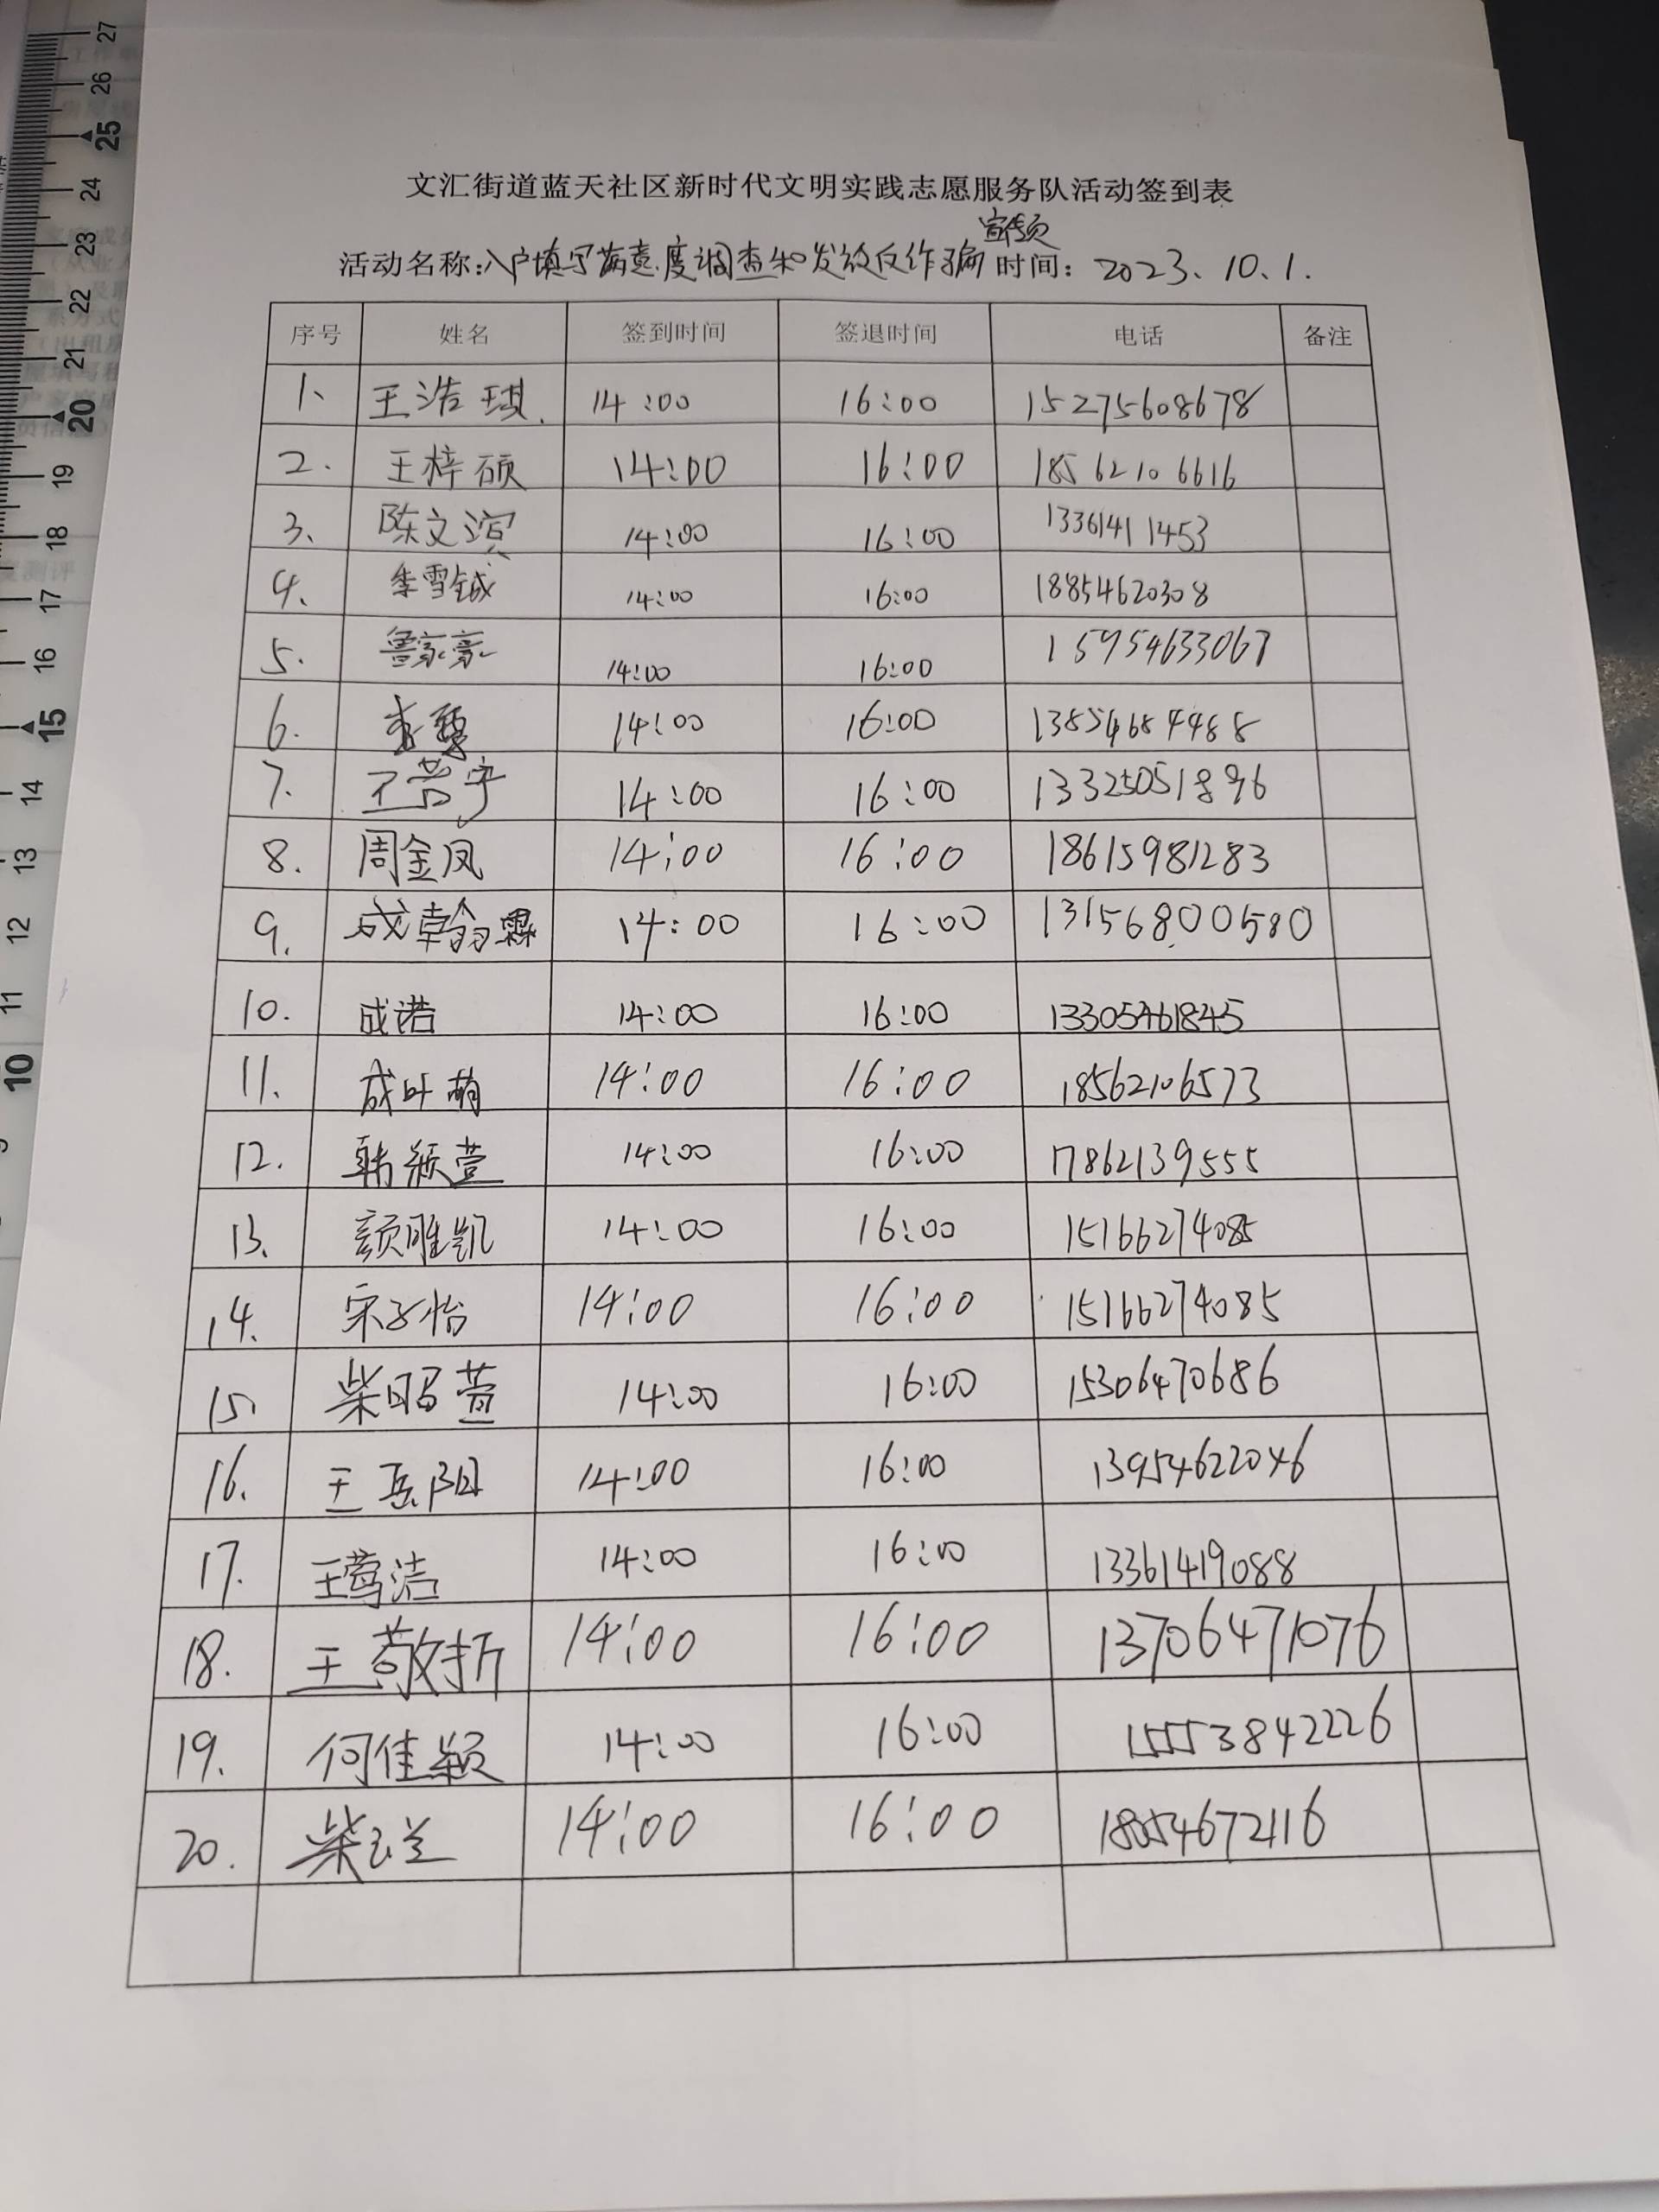 文汇街道蓝天社区新时代文明实践志愿服务队活动签到表
宣传页
活动名称:入户填写满意度调查和发放反诈骗 时间: 2023.10.1.
序号 姓名 签到时间 签退时间 电话 备注
1、 王浩琪. 14:00 16:00 15275608678
2. 王梓硕 14:00 16:00 18562106616
3、 陈文滨 14:00 16:00 13361411453
4、 李雪铖 14:00 16:00 18854620308
5. 鲁家豪 14:00 16:00 15954633067
6. 14:00 16:00 13854684488
7. 14:00 16:00 13325051896
8. 周金凤 14:00 16:00 18615981283
9. 成翰霖 14:00 16:00 13156800580
10. 成诺 14:00 16:00 13305461845
11. 成叶萌 14:00 16:00 18562106573
12. 韩颖萱 14:00 16:00 17862139555
13. 颜雅凯 14:00 16:00 15166274085
14. 宋子怡 14:00 16:00 15166274085
15、 柴昭萱 14:00 16:00 15306470686
16. 王岳阳 14:00 16:00 13954622046
17. 王莺洁 14:00 16:00 13361419088
18. 王敬折 14:00 16:00 13706471076
19. 何佳颖 14:00 16:00 15553842226
20. 柴玉兰 14:00 16:00 18054672116
27
26
25
24
23
22
21
20
19
18
17
16
15
14
13
12
11
10